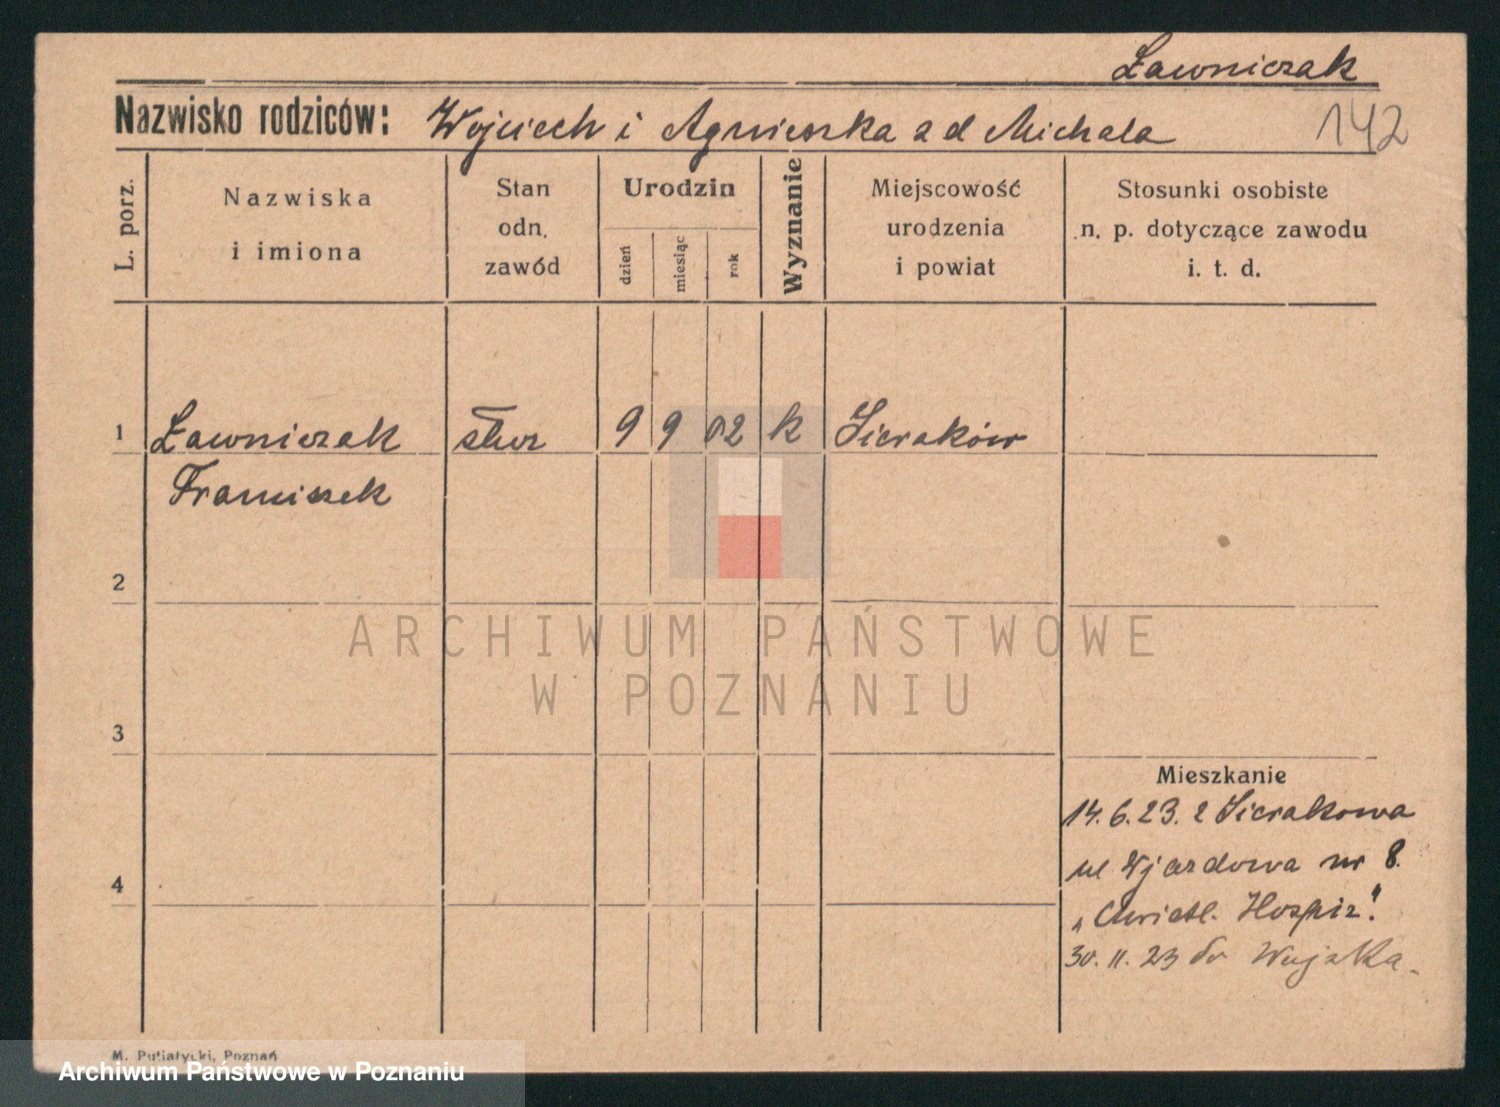 Ławniczak
Nazwisko rodziców: Wojciech i Agnieszka z d Michala
142
L. porz.
Nazwiska
i imiona
Stan
odn.
zawód
Urodzin
dzień
miesiąc
rok
Wyznanie
Miejscowość
urodzenia
i powiat
Stosunki osobiste
n. p. dotyczące zawodu
i. t. d.
1 Ławniczak 9 9 02 k Sieraków
Franciszek
2
ARCHIWUM PAŃSTWOWE
W POZNANIU
3
Mieszkanie
14.6.23. z Sierakowa
ul Wjazdowa nr 8.
4
„Christl. Hospiz".
30.11.23 do Wojska.
M. Putiatycki, Poznań
Archiwum Państwowe w Poznaniu